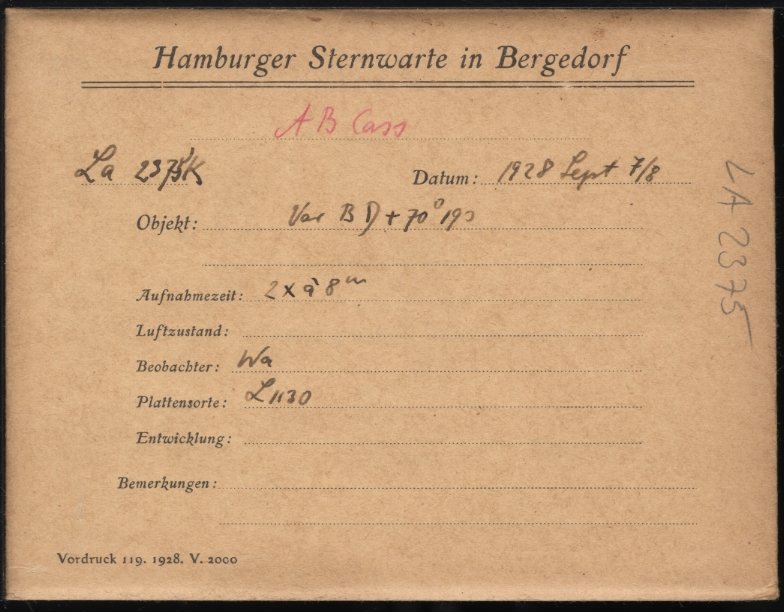 Hamburger Sternwarte in Bergedorf
AB Cass
La 2375K Datum: 1928 Sept 7/8
Objekt: Var BD+70°190
Aufnahmezeit: 2x à 8m
Luftzustand:
Beobachter: Wa
Plattensorte: L1130
Entwicklung:
Bemerkungen:
Vordruck 119. 1928. V. 2000
LA 2375